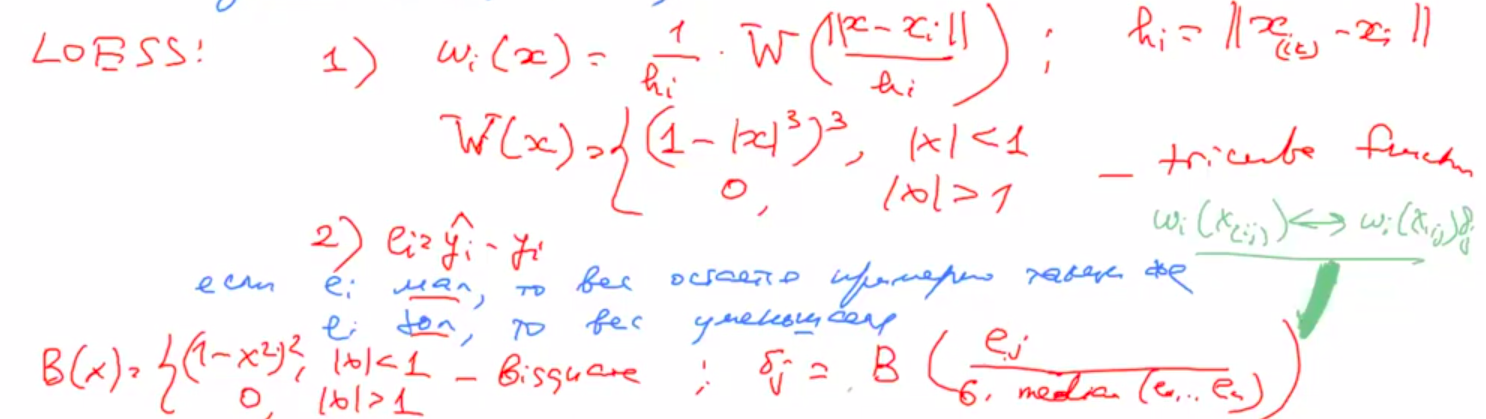 LOESS: 1) wᵢ(x) = 1/hᵢ · W(||x - xᵢ|| / hᵢ) ; hᵢ = ||x₍ₖ₎ - xᵢ||
W(x) = { (1 - |x|³)³, |x| < 1
0, |x| > 1 — tricube function
wᵢ(x₍ᵢⱼ₎) ↔ wᵢ(x₍ᵢⱼ₎)δⱼ
2) eᵢ = ŷᵢ - yᵢ
если eᵢ мал, то вес остается примерно таким же
eᵢ бол, то вес уменьшаем
B(x) = { (1 - x²)², |x| < 1
0, |x| > 1 — Bisquare ; δⱼ = B(eⱼ / 6 · median (e₁...eₙ))